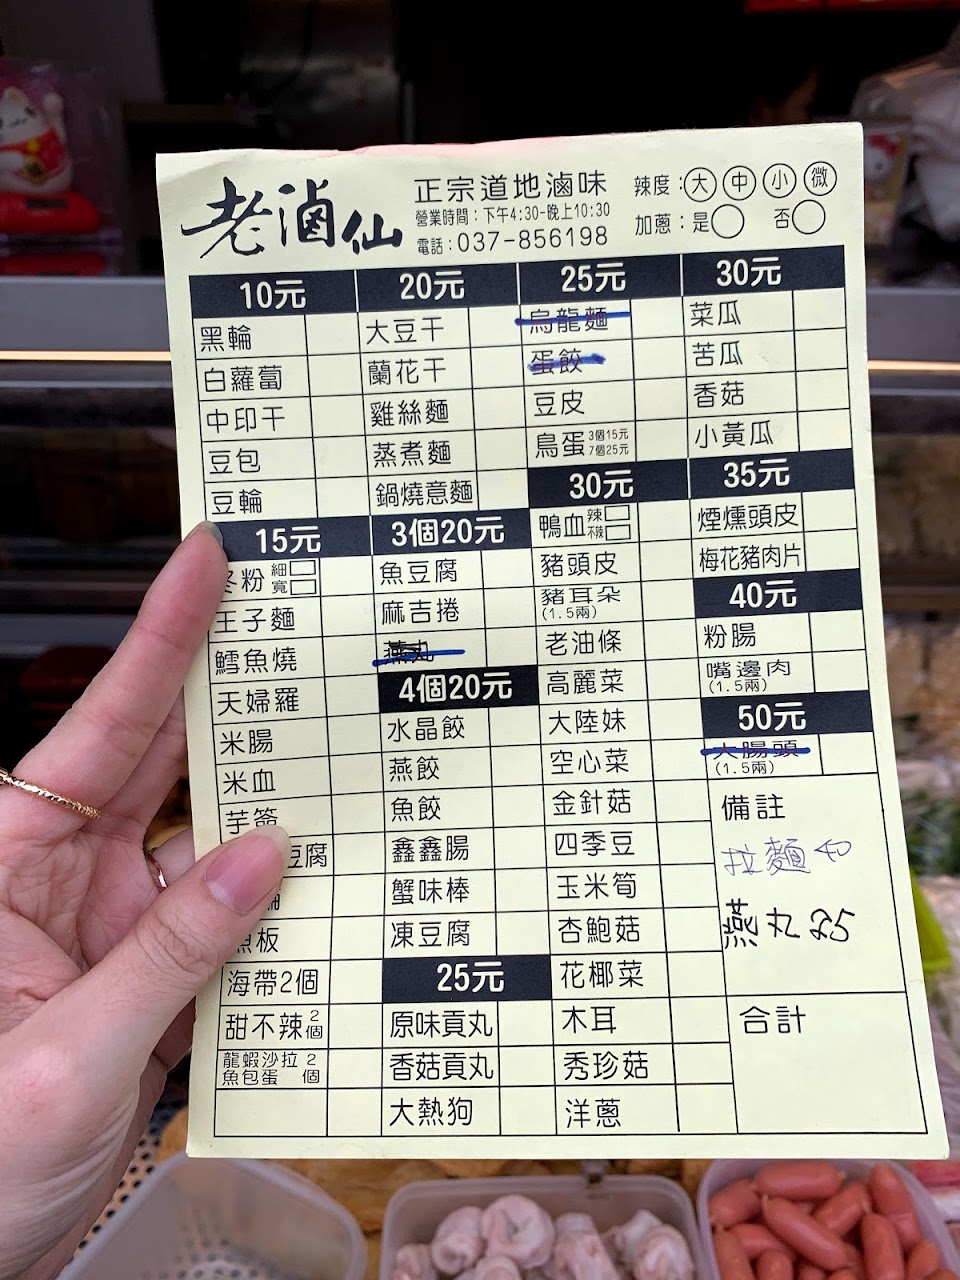 老滷仙
正宗道地滷味
營業時間：下午4:30-晚上10:30
電話：037-856198
辣度：大 中 小 微
加蔥：是 否
10元
黑輪
白蘿蔔
中印干
豆包
豆輪
15元
冬粉 細 寬
王子麵
鱈魚燒
天婦羅
米腸
米血
芋籤
豆腐
魚板
海帶2個
甜不辣2個
龍蝦沙拉2
魚包蛋 個
20元
大豆干
蘭花干
雞絲麵
蒸煮麵
鍋燒意麵
3個20元
魚豆腐
麻吉捲
燕丸
4個20元
水晶餃
燕餃
魚餃
鑫鑫腸
蟹味棒
凍豆腐
25元
原味貢丸
香菇貢丸
大熱狗
25元
烏龍麵
蛋餃
豆皮
鳥蛋 3個15元
7個25元
30元
鴨血 辣 不辣
豬頭皮
豬耳朵
(1.5兩)
老油條
高麗菜
大陸妹
空心菜
金針菇
四季豆
玉米筍
杏鮑菇
花椰菜
木耳
秀珍菇
洋蔥
30元
菜瓜
苦瓜
香菇
小黃瓜
35元
煙燻頭皮
梅花豬肉片
40元
粉腸
嘴邊肉
(1.5兩)
50元
大腸頭
(1.5兩)
備註
拉麵
燕丸25
合計